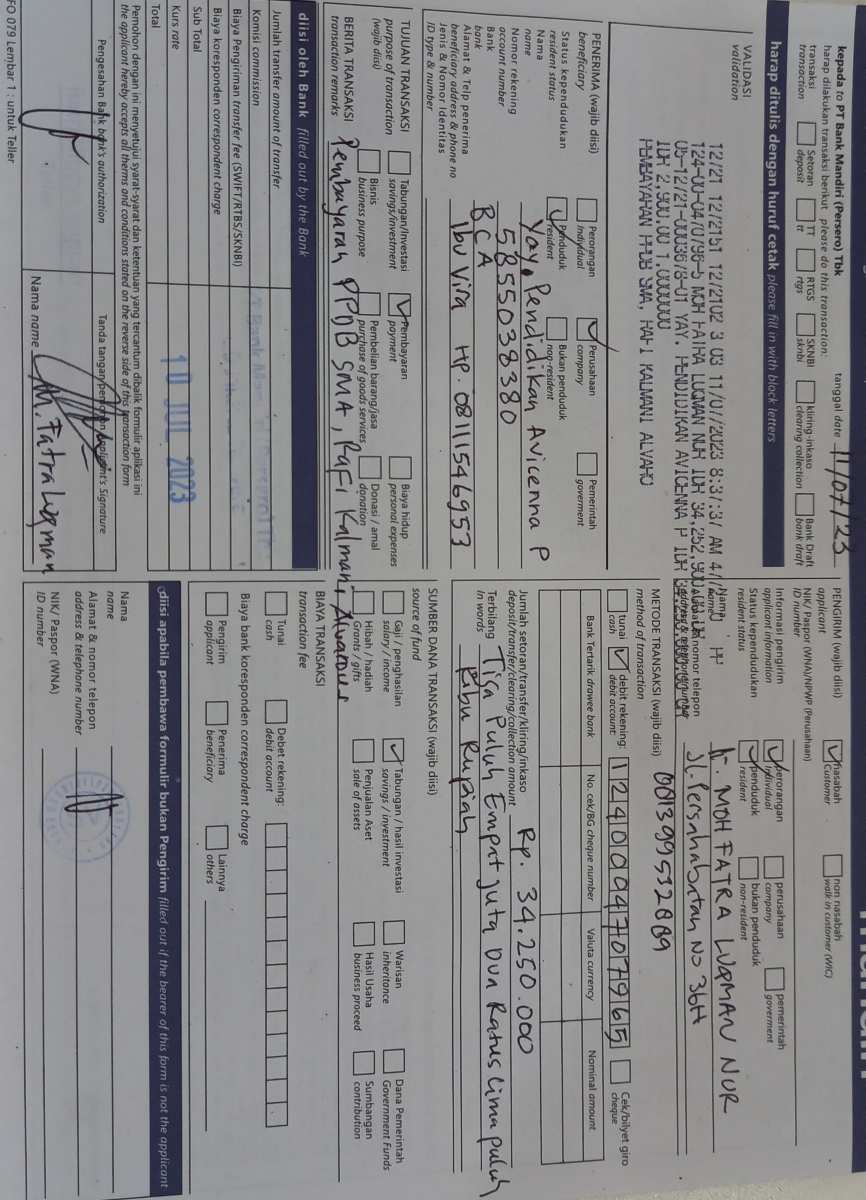 kepada to PT Bank Mandiri (Persero) Tbk
harap dilakukan transaksi berikut please do this transaction:
tanggal date 11/07/23
transaksi transaction
Setoran deposit
TT tt
RTGS rtgs
SKNBI sknbi
kliring-inkaso clearing collection
Bank Draft bank draft
harap ditulis dengan huruf cetak please fill in with block letters
VALIDASI
validation
PENERIMA (wajib diisi)
beneficiary
Perorangan Individual
Perusahaan company
Pemerintah goverment
Status kependudukan
resident status
Penduduk resident
Bukan penduduk non-resident
Nama
name
Yay. Pendidikan Avicenna P
Nomor rekening
account number
5855038380
Bank
bank
BCA
Alamat & Telp penerima
beneficiary address & phone no
Ibu Vira HP. 08111546953
Jenis & Nomor Identitas
ID type & number
TUJUAN TRANSAKSI
purpose of transaction
(wajib diisi)
Tabungan/Investasi savings/investment
Pembayaran payment
Biaya hidup personal expenses
Bisnis business purpose
Pembelian barang/jasa purchase of goods services
Donasi / amal donation
BERITA TRANSAKSI
transaction remarks
Pembayaran PPDB SMA, Rafi Kalmani
diisi oleh Bank filled out by the Bank
Jumlah transfer amount of transfer
Komisi commission
Biaya Pengiriman transfer fee (SWIFT/RTBS/SKNBI)
Biaya koresponden correspondent charge
Sub Total
Kurs rate
Total
10 JUL 2023
Pemohon dengan ini menyetujui syarat-syarat dan ketentuan yang tercantum dibalik formulir aplikasi ini
the applicant hereby accepts all therms and conditions stated on the reverse side of this transaction form
Pengesahan Bank bank's authorization
Tanda tangan pemohon applicant's Signature
Nama name M. Fatra Luqman
FO 079 Lembar 1 : untuk Teller
PENGIRIM (wajib diisi)
applicant
nasabah Customer
non nasabah walk in customer (WIC)
NIK/ Paspor (WNA)/NPWP (Perusahaan)
ID number
Informasi pengirim
applicant information
perorangan individual
perusahaan company
pemerintah goverment
Status kependudukan
resident status
penduduk resident
bukan penduduk non-resident
MOH FATRA LUQMAN NUR
Jl. Persahabatan No 36H
METODE TRANSAKSI (wajib diisi)
method of transaction
tunai cash
debit rekening: debit account:
1240094707965
Cek/bilyet giro cheque
Bank Tertarik drawee bank
No. cek/BG cheque number
Valuta currency
Nominal amount
Jumlah setoran/transfer/kliring/inkaso
deposit/transfer/clearing/collection amount
Rp. 34.250.000
Terbilang
in words
Tiga Puluh Empat Juta Dua Ratus Lima puluh
Ribu Rupiah
SUMBER DANA TRANSAKSI (wajib diisi)
source of fund
Gaji / penghasilan salary / income
Tabungan / hasil investasi savings / investment
Warisan inheritance
Dana Pemerintah Government Funds
Hibah / hadiah Grants / gifts
Penjualan Aset sale of assets
Hasil Usaha business proceed
Sumbangan contribution
BIAYA TRANSAKSI
transaction fee
Tunai cash
Debet rekening: debit account:
Biaya bank koresponden correspondent bank charge
Pengirim applicant
Penerima beneficiary
Lainnya others
diisi apabila pembawa formulir bukan Pengirim filled out if the bearer of this form is not the applicant
Nama
name
Alamat & nomor telepon
address & telephone number
NIK/ Paspor (WNA)
ID number